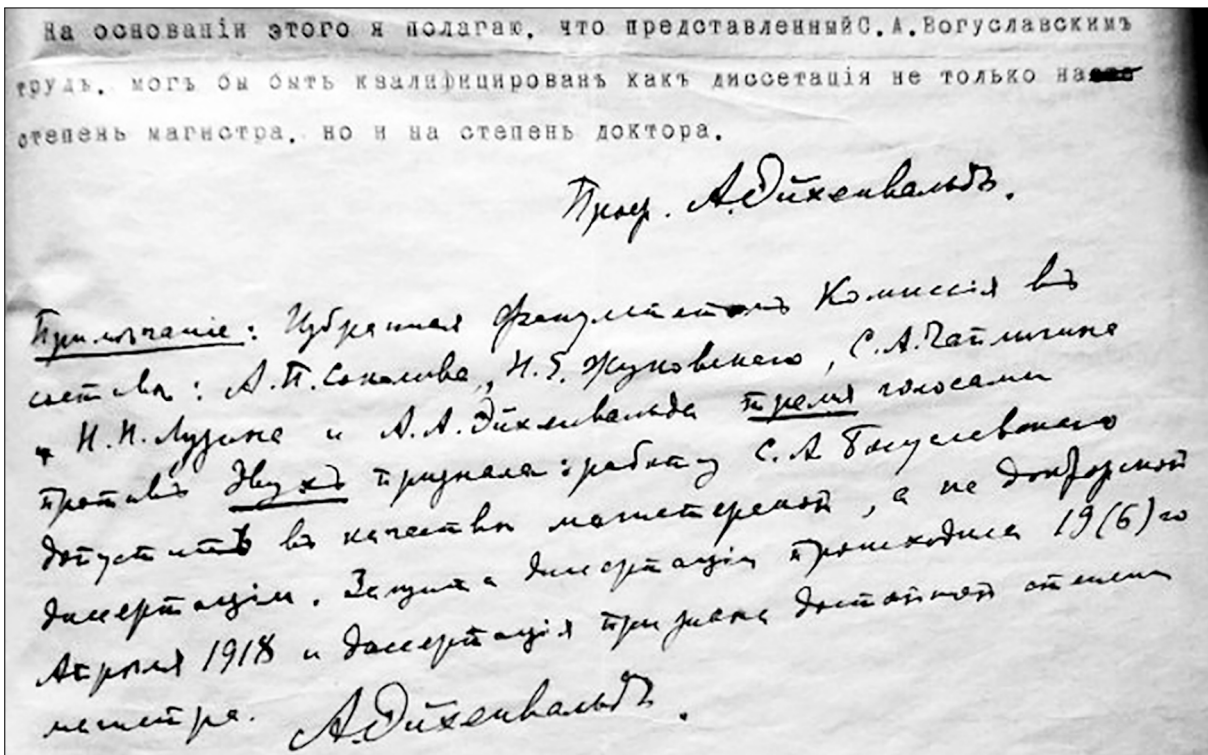 На основаніи этого я полагаю, что представленныйС.А.Богуславскимъ
трудъ, могъ бы быть квалифицированъ какъ диссетація не только на
степень магистра, но и на степень доктора.
Проф. А.Эйхенвальдъ.
Примѣчаніе: Избранная факультетомъ Комиссія въ
составѣ: А.П.Соколова, Н.Е.Жуковскаго, С.А.Чаплыгина
Н.Н.Лузина и А.А.Эйхенвальда тремя голосами
противъ двухъ признала: работу С.А Богуславскаго
допустить въ качествѣ магистерской, а не докторской
диссертаціи. Защита диссертаціи происходила 19(6)го
Апрѣля 1918 и диссертація признана достойной степени
магистра. А.Эйхенвальдъ.